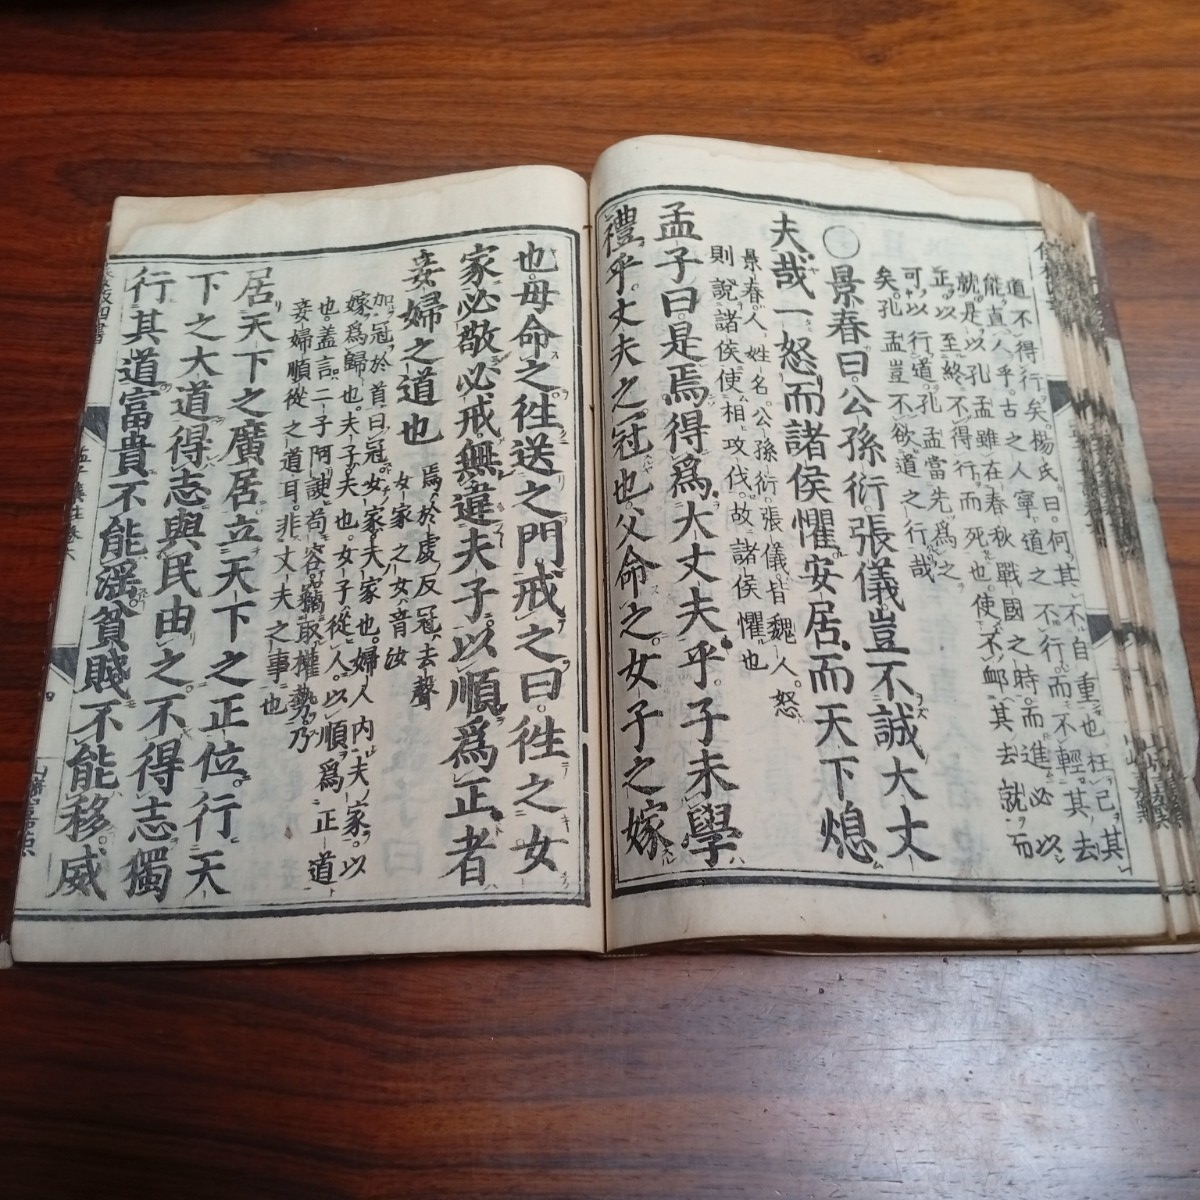 道不得行矣楊氏曰何其不自重也枉己其
能直人乎古之人寧道之不行而不輕其去
就是以孔孟雖在春秋戰國之時而進必以
正以至終不得行而死也使不䘏其去就而
可以行道孔孟當先爲之
矣孔孟豈不欲道之行哉
〇景春曰公孫衍張儀豈不誠大丈
夫哉一怒而諸侯懼安居而天下熄
景春人姓名公孫衍張儀皆魏人怒
則說諸侯使相攻伐故諸侯懼也
孟子曰是焉得爲大丈夫乎子未學
禮乎丈夫之冠也父命之女子之嫁
也母命之徃送之門戒之曰徃之女
家必敬必戒無違夫子以順爲正者
妾婦之道也
焉於虔反冠去聲
女家之女音汝
加冠於首曰冠女家夫家也婦人内夫家以
嫁爲歸也夫子夫也女子從人以順爲正道
也盖言二子阿諛苟容竊取權勢乃
妾婦順從之道耳非丈夫之事也
居天下之廣居立天下之正位行天
下之大道得志與民由之不得志獨
行其道富貴不能滛貧賤不能移威